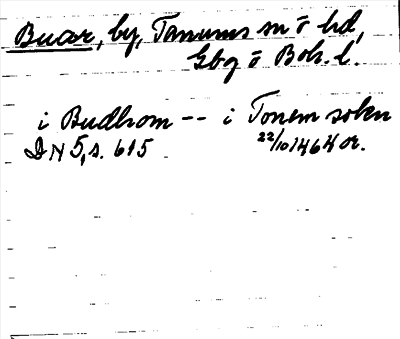 Buar, by, Tanums sn o hd,
Gbg o Boh. l.
i Budhom -- i Tonem sokn
DN 5, s. 615 22/10 1464 or.